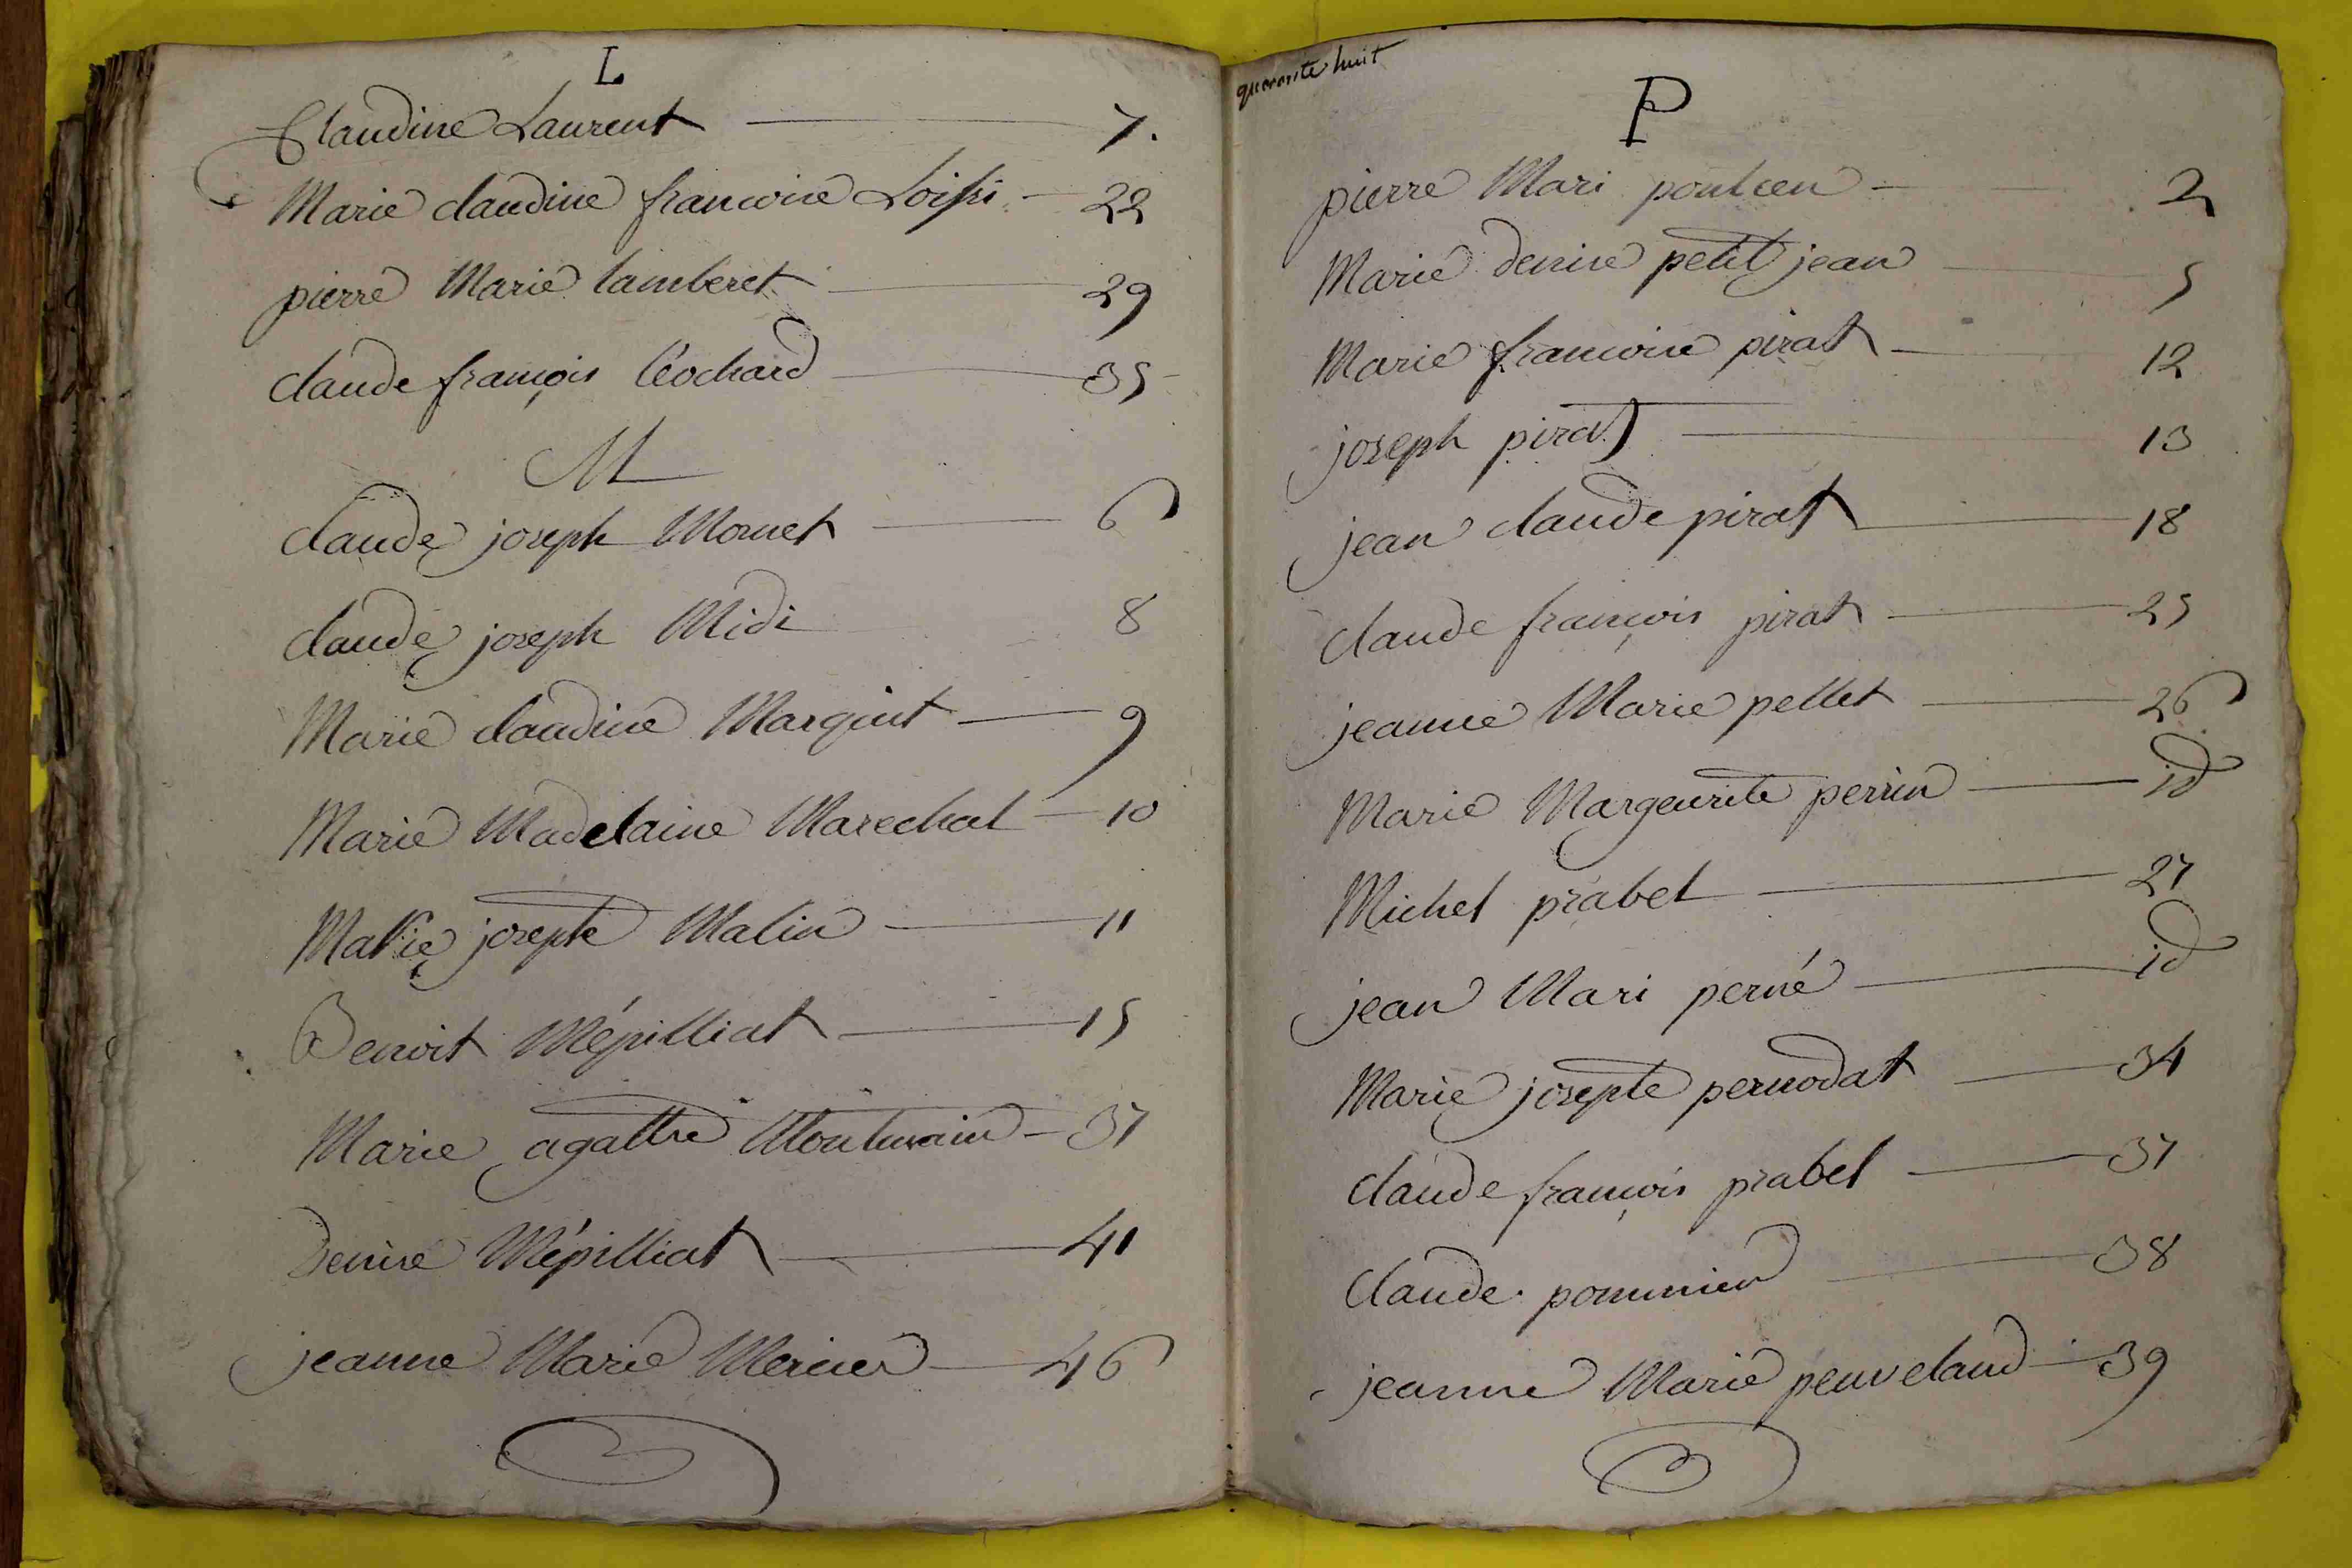 L
Claudine Laurent 7.
Marie claudine francoise Loisi 22
pierre Marie lamberet 29
claude françois Cochard 35
M
claude joseph Mornet 6
claude joseph Midi 8
Marie claudine Margint 9
Marie Madelaine Marechal 10
Marie josephe Malin 11
Benoit Mépilliat 15
Marie agathe 37
Denise Mépilliat 41
jeanne Marie Mercier 46
quarante huit
P
pierre Mari 2
Marie denise petit jean 5
Marie francoise pirat 12
joseph pirat 13
jean claude pirat 18
claude françois pirat 25
jeanne Marie pellet 26
Marie Margeurite perrin id
Michel prabel 27
jean Mari perné id
Marie josepte pernodat 34
claude françois prabel 37
claude pommier 38
jeanne Marie peuvelaud 39